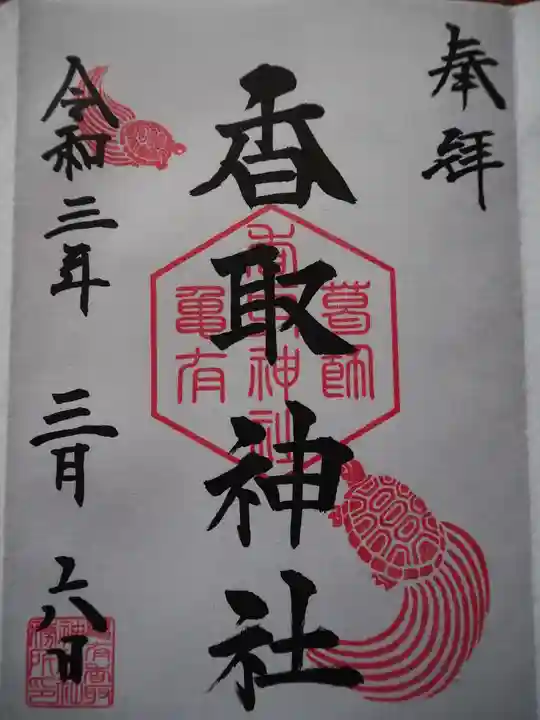 奉拝
香取神社
葛飾
香取神社
亀有
令和三年 三月 六日